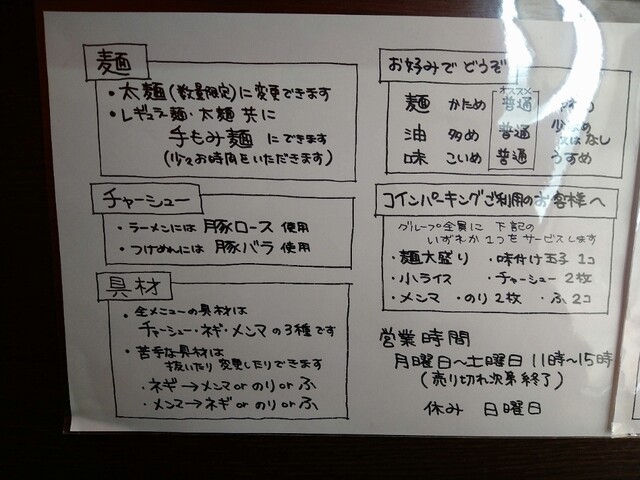 麺
・太麺(数量限定)に変更できます
・レギュラー麺・太麺 共に
手もみ麺 にできます
(少々お時間をいただきます)
チャーシュー
・ラーメンには 豚ロース 使用
・つけめんには 豚バラ 使用
具材
・全メニューの具材は
チャーシュー・ネギ・メンマ の3種です
・苦手な具材は
抜いたり 変更したりできます
・ネギ→メンマ or のり or ふ
・メンマ→ネギ or のり or ふ
お好みで どうぞ
オススメ
麺 かため 普通
油 多め 普通 なし
味 こいめ 普通 うすめ
コインパーキングご利用のお客様へ
グループ全員に 下記の
いずれか1つをサービスします
・麺大盛り ・味付け玉子 1コ
・小ライス ・チャーシュー 2枚
・メンマ ・のり 2枚 ・ふ 2コ
営業時間
月曜日〜土曜日 11時〜15時
(売り切れ次第終了)
休み 日曜日